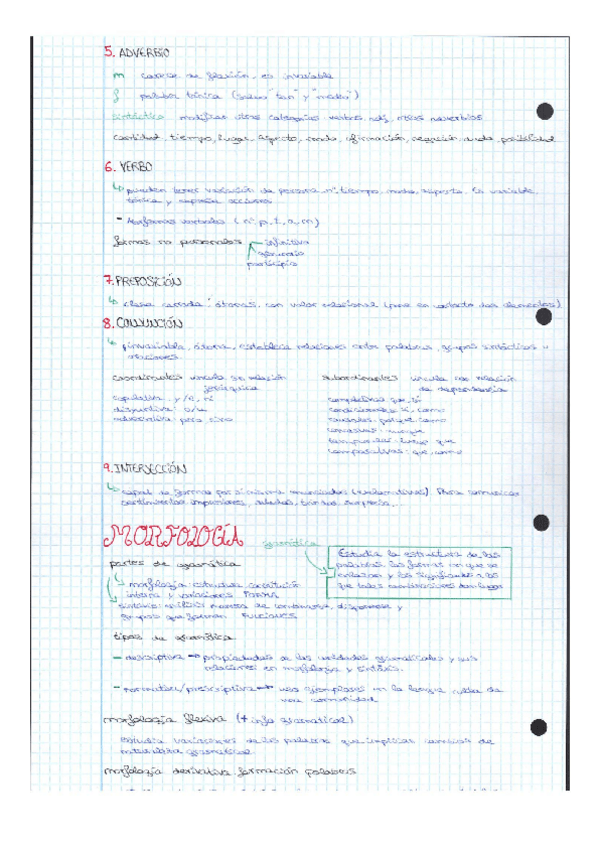 5. ADVERBIO
m carece de flexión, es invariable
f palabra tónica (salvo "tan" y "medio")
sintáctico modifica otras categorías verbos, adj, otros adverbios
cantidad, tiempo, lugar, aspecto, modo, afirmación, negación, duda, posibilidad
6. VERBO
pueden tener variación de persona, nº, tiempo, modo, aspecto. Es variable,
tónica y expresa acciones
- formas verbales (nº, p, t, a, m)
formas no personales infinitivo
gerundio
participio
7. PREPOSICIÓN
clase cerrada, átonas, con valor relacional (pone en contacto dos elementos)
8. CONJUNCIÓN
invariable, átona, establece relaciones entre palabras, grupos sintácticos u
oraciones
coordinantes vincula sin relación
jerárquica
copulativa y/e, ni
disyuntiva o/u
adversativa pero sino
subordinantes vincula con relación
de dependencia
completivas que, si
condicionales si, como
causales porque como
concesivas aunque
temporales luego que
comparativas que, como
9. INTERJECCIÓN
capaz de formar por sí misma enunciados (exclamativos) Para comunicar
sentimientos impresiones, saludos, brindis, sorpresa,...
MORFOLOGÍA gramática
Estudia la estructura de las
palabras, las formas en que se
enlazan y los significados a los
que tales combinaciones dan lugar
partes de gramática
morfología: estructura, constitución
interna y variaciones FORMA
sintaxis: análisis manera de combinarse, disponerse y
grupos que forman FUNCIONES
tipos de gramática
- descriptiva → propiedades de las unidades gramaticales y sus
relaciones en morfología y sintaxis.
- normativa/prescriptiva → usos ejemplares en la lengua culta de
una comunidad
morfología flexiva (+ info gramatical)
Estudia variaciones de las palabras que implican cambios de
naturaleza gramatical.
morfología derivativa formación palabras